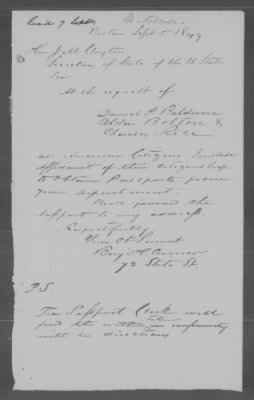 Recd 7 Sept
Boston Sept 5 1849
Hon J. M. Clayton
Secretary of State of the U States
Sir
At the request of
Daniel P. Baldwin
Alden Bolton &
Charles Rice
as American Citizens, I inclose
of their citizenship
to obtain Passports from
your department.
Please forward the
Passports to my address.
Respectfully
Your Obt Servant
Benj H. Currier
72 State St
P.S.
The Passport Clerk will
find the within in conformity
with his directions.